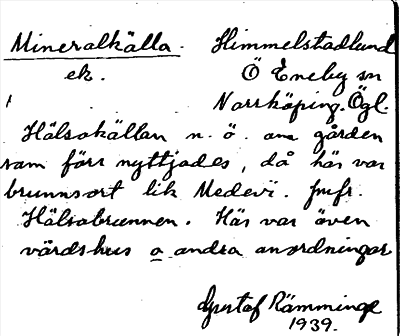 Mineralkälla. Himmelstadlund
ek. Ö Eneby sn
Norrköping. Ögl.
Hälsokällan n. ö. om gården
som förr nyttjades, då här var
brunnsort lik Medevi. Jmfr.
Hälsobrunnen. Här var även
värdshus o andra anordningar
Gustaf Rämminge
1939.